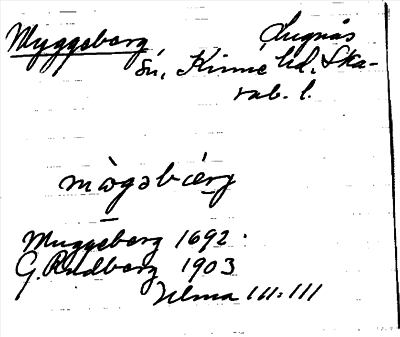 Myggeberg Lugnås
sn, Kinne hd. Ska-
rab. l.
mògəbærj
Muggeberg 1692.
G. Rudberg 1903
Uema III:III